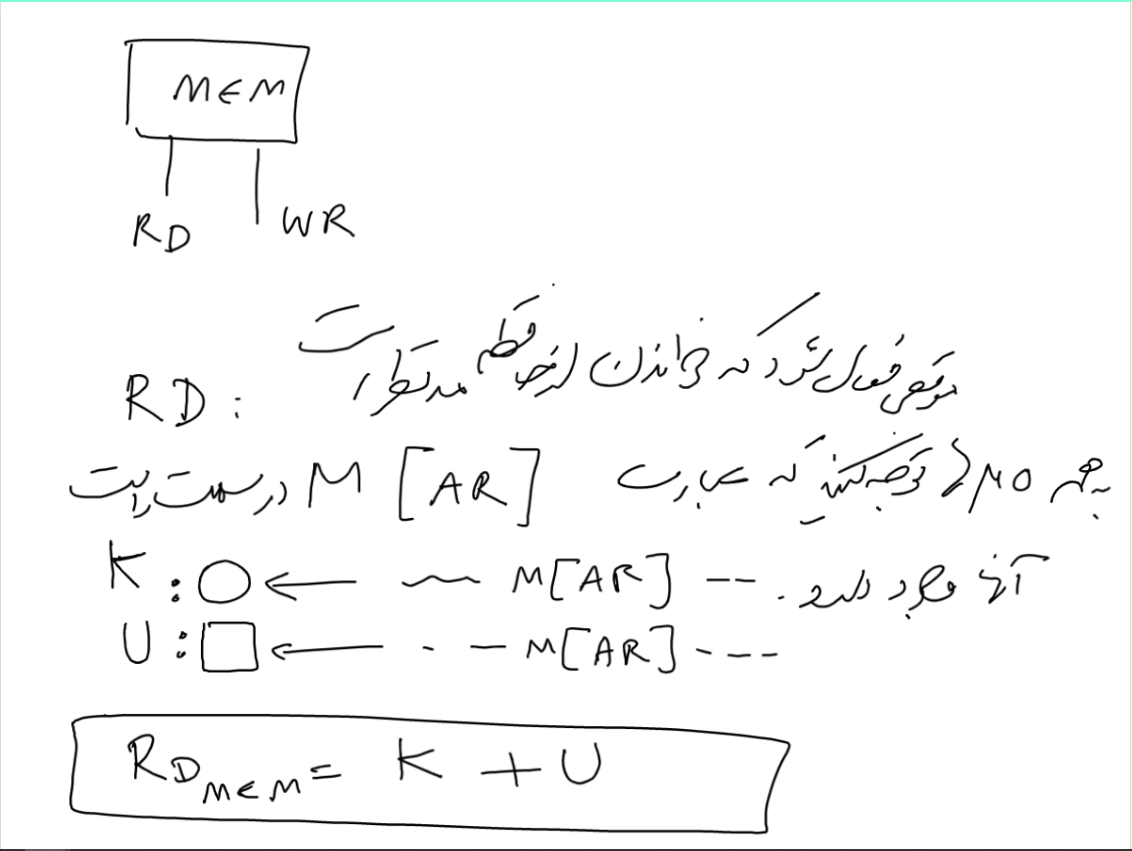 MEM
RD WR
RD: موقعی فعال شود که خواندن از حافظه مدنظر است
به همه μO هایی توجه کنید که عبارت M[AR] در سمت راست
آنها وجود دارد.
K: ○ ← ~ M[AR] --
U: □ ← - — M[AR] ----
RD_MEM = K + U